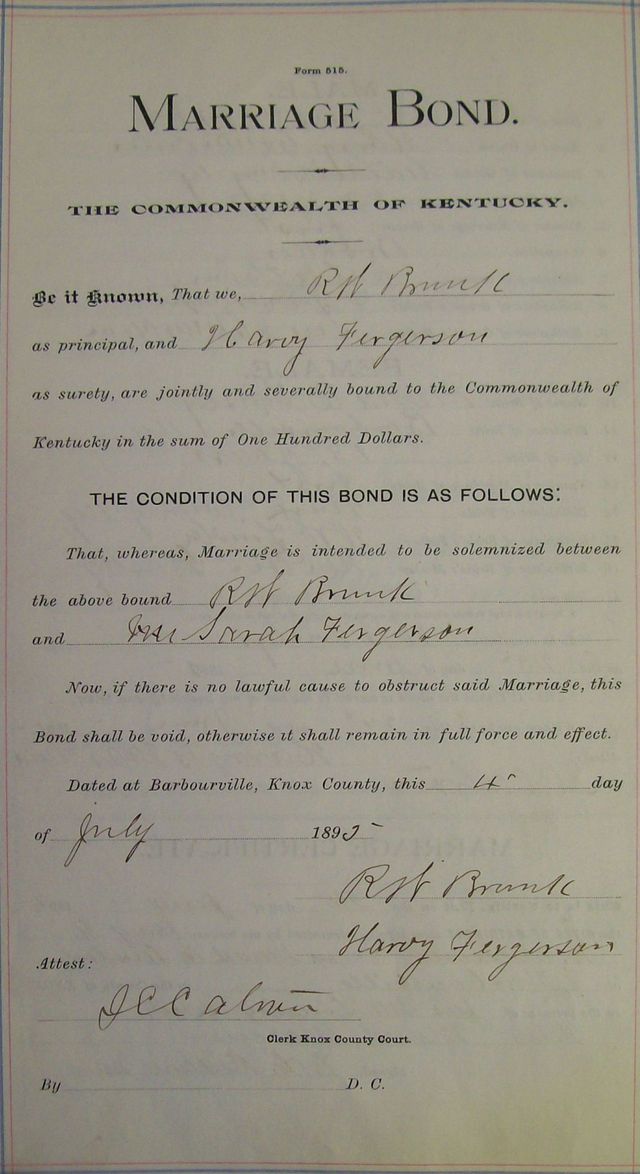 Form 515.
MARRIAGE BOND.
THE COMMONWEALTH OF KENTUCKY.
Be it Known, That we, RW Brunk
as principal, and Harvy Fergerson
as surety, are jointly and severally bound to the Commonwealth of
Kentucky in the sum of One Hundred Dollars.
THE CONDITION OF THIS BOND IS AS FOLLOWS:
That, whereas, Marriage is intended to be solemnized between
the above bound RW Brunk
and Sarah Fergerson
Now, if there is no lawful cause to obstruct said Marriage, this
Bond shall be void, otherwise it shall remain in full force and effect.
Dated at Barbourville, Knox County, this 4 day
of July 1895
RW Brunk
Harvy Fergerson
Attest:
Clerk Knox County Court.
By D. C.